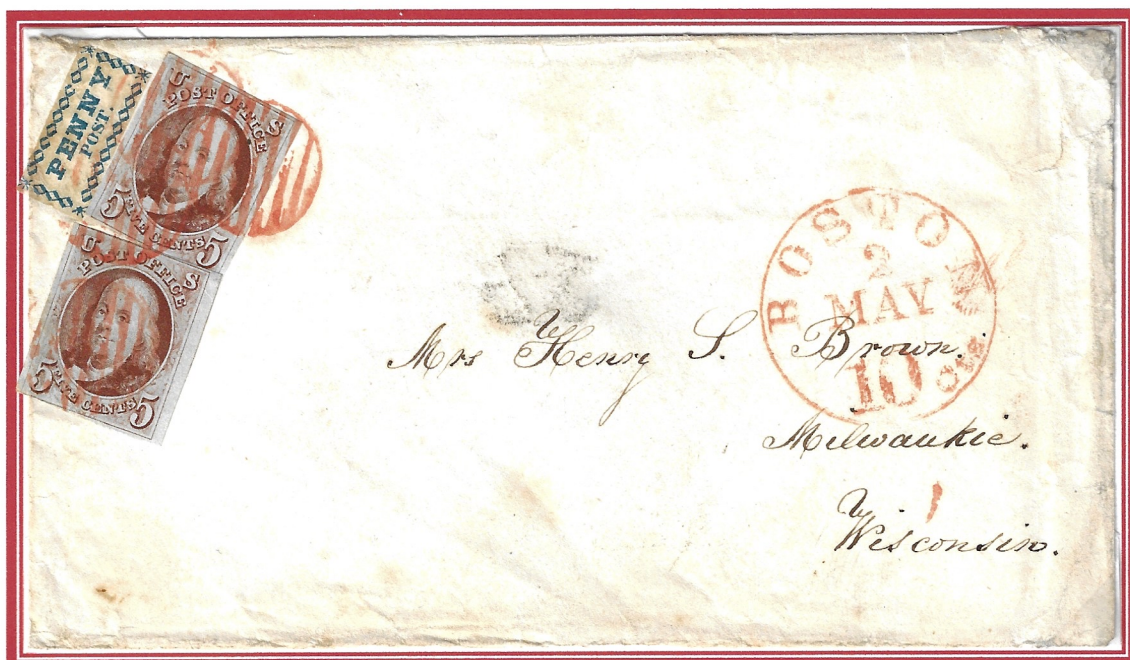 PENNY
POST.
U S
POST OFFICE
FIVE CENTS
5 5
U S
POST OFFICE
FIVE CENTS
5 5
BOSTON
2
MAY
10 cts
Mrs Henry S. Brown.
Milwaukie.
Wisconsin.